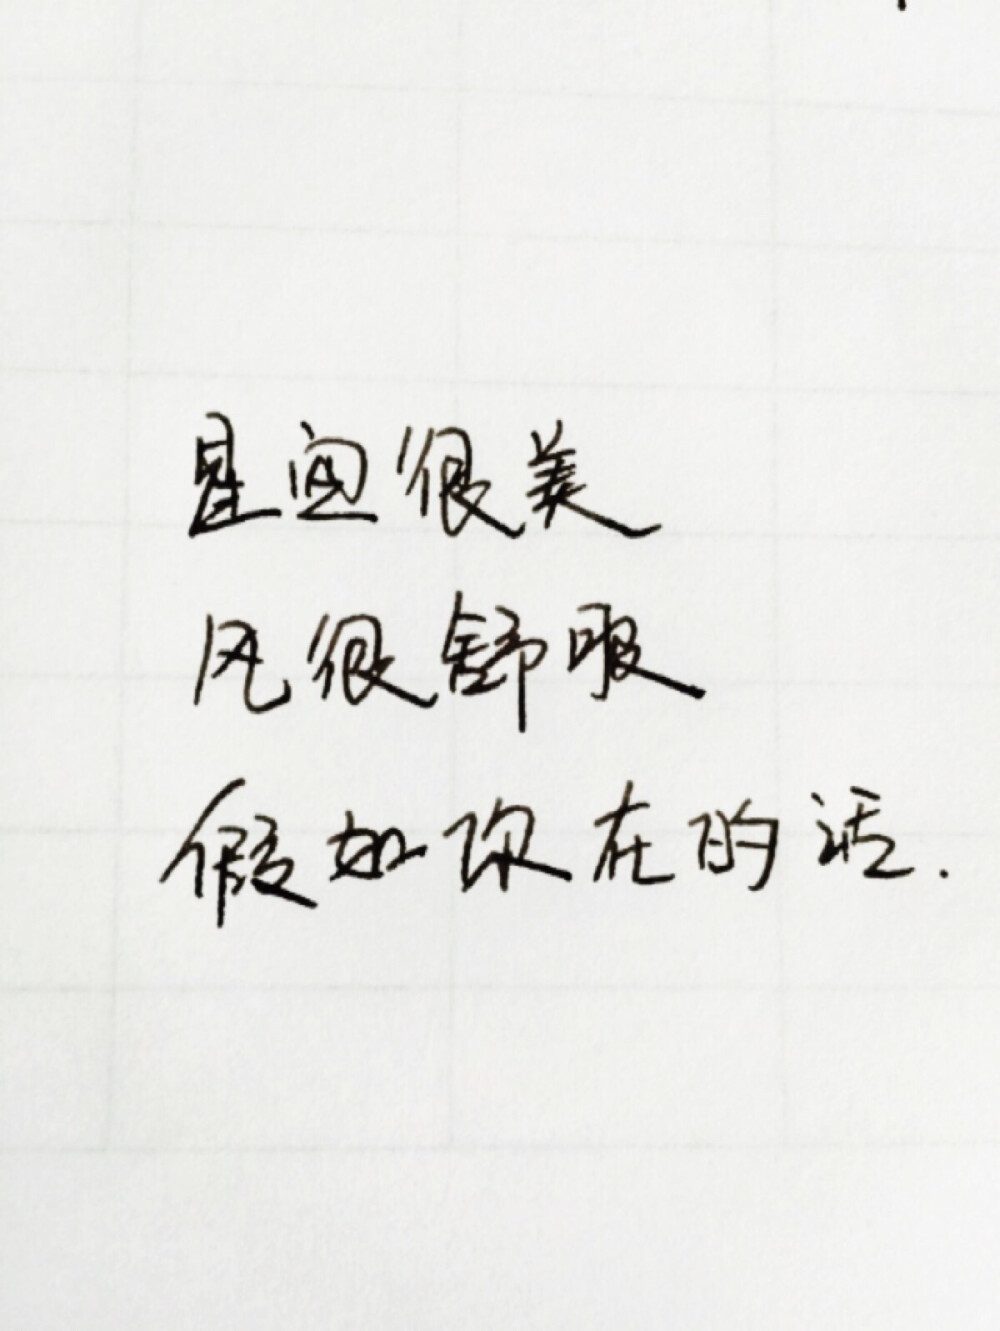 星空很美
风很舒服
假如你在的话.